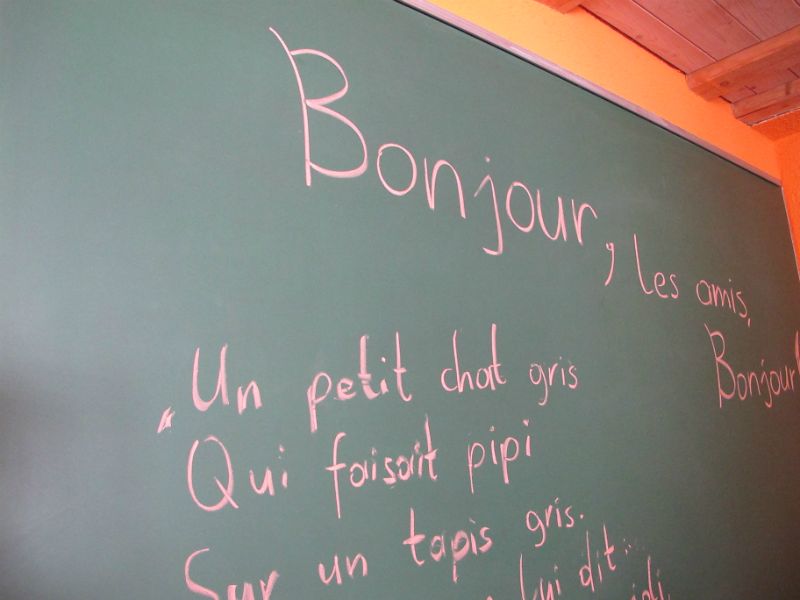 Bonjour, les amis,
Bonjour!
„Un petit chat gris
Qui faisait pipi
Sur un tapis gris.
lui dit: